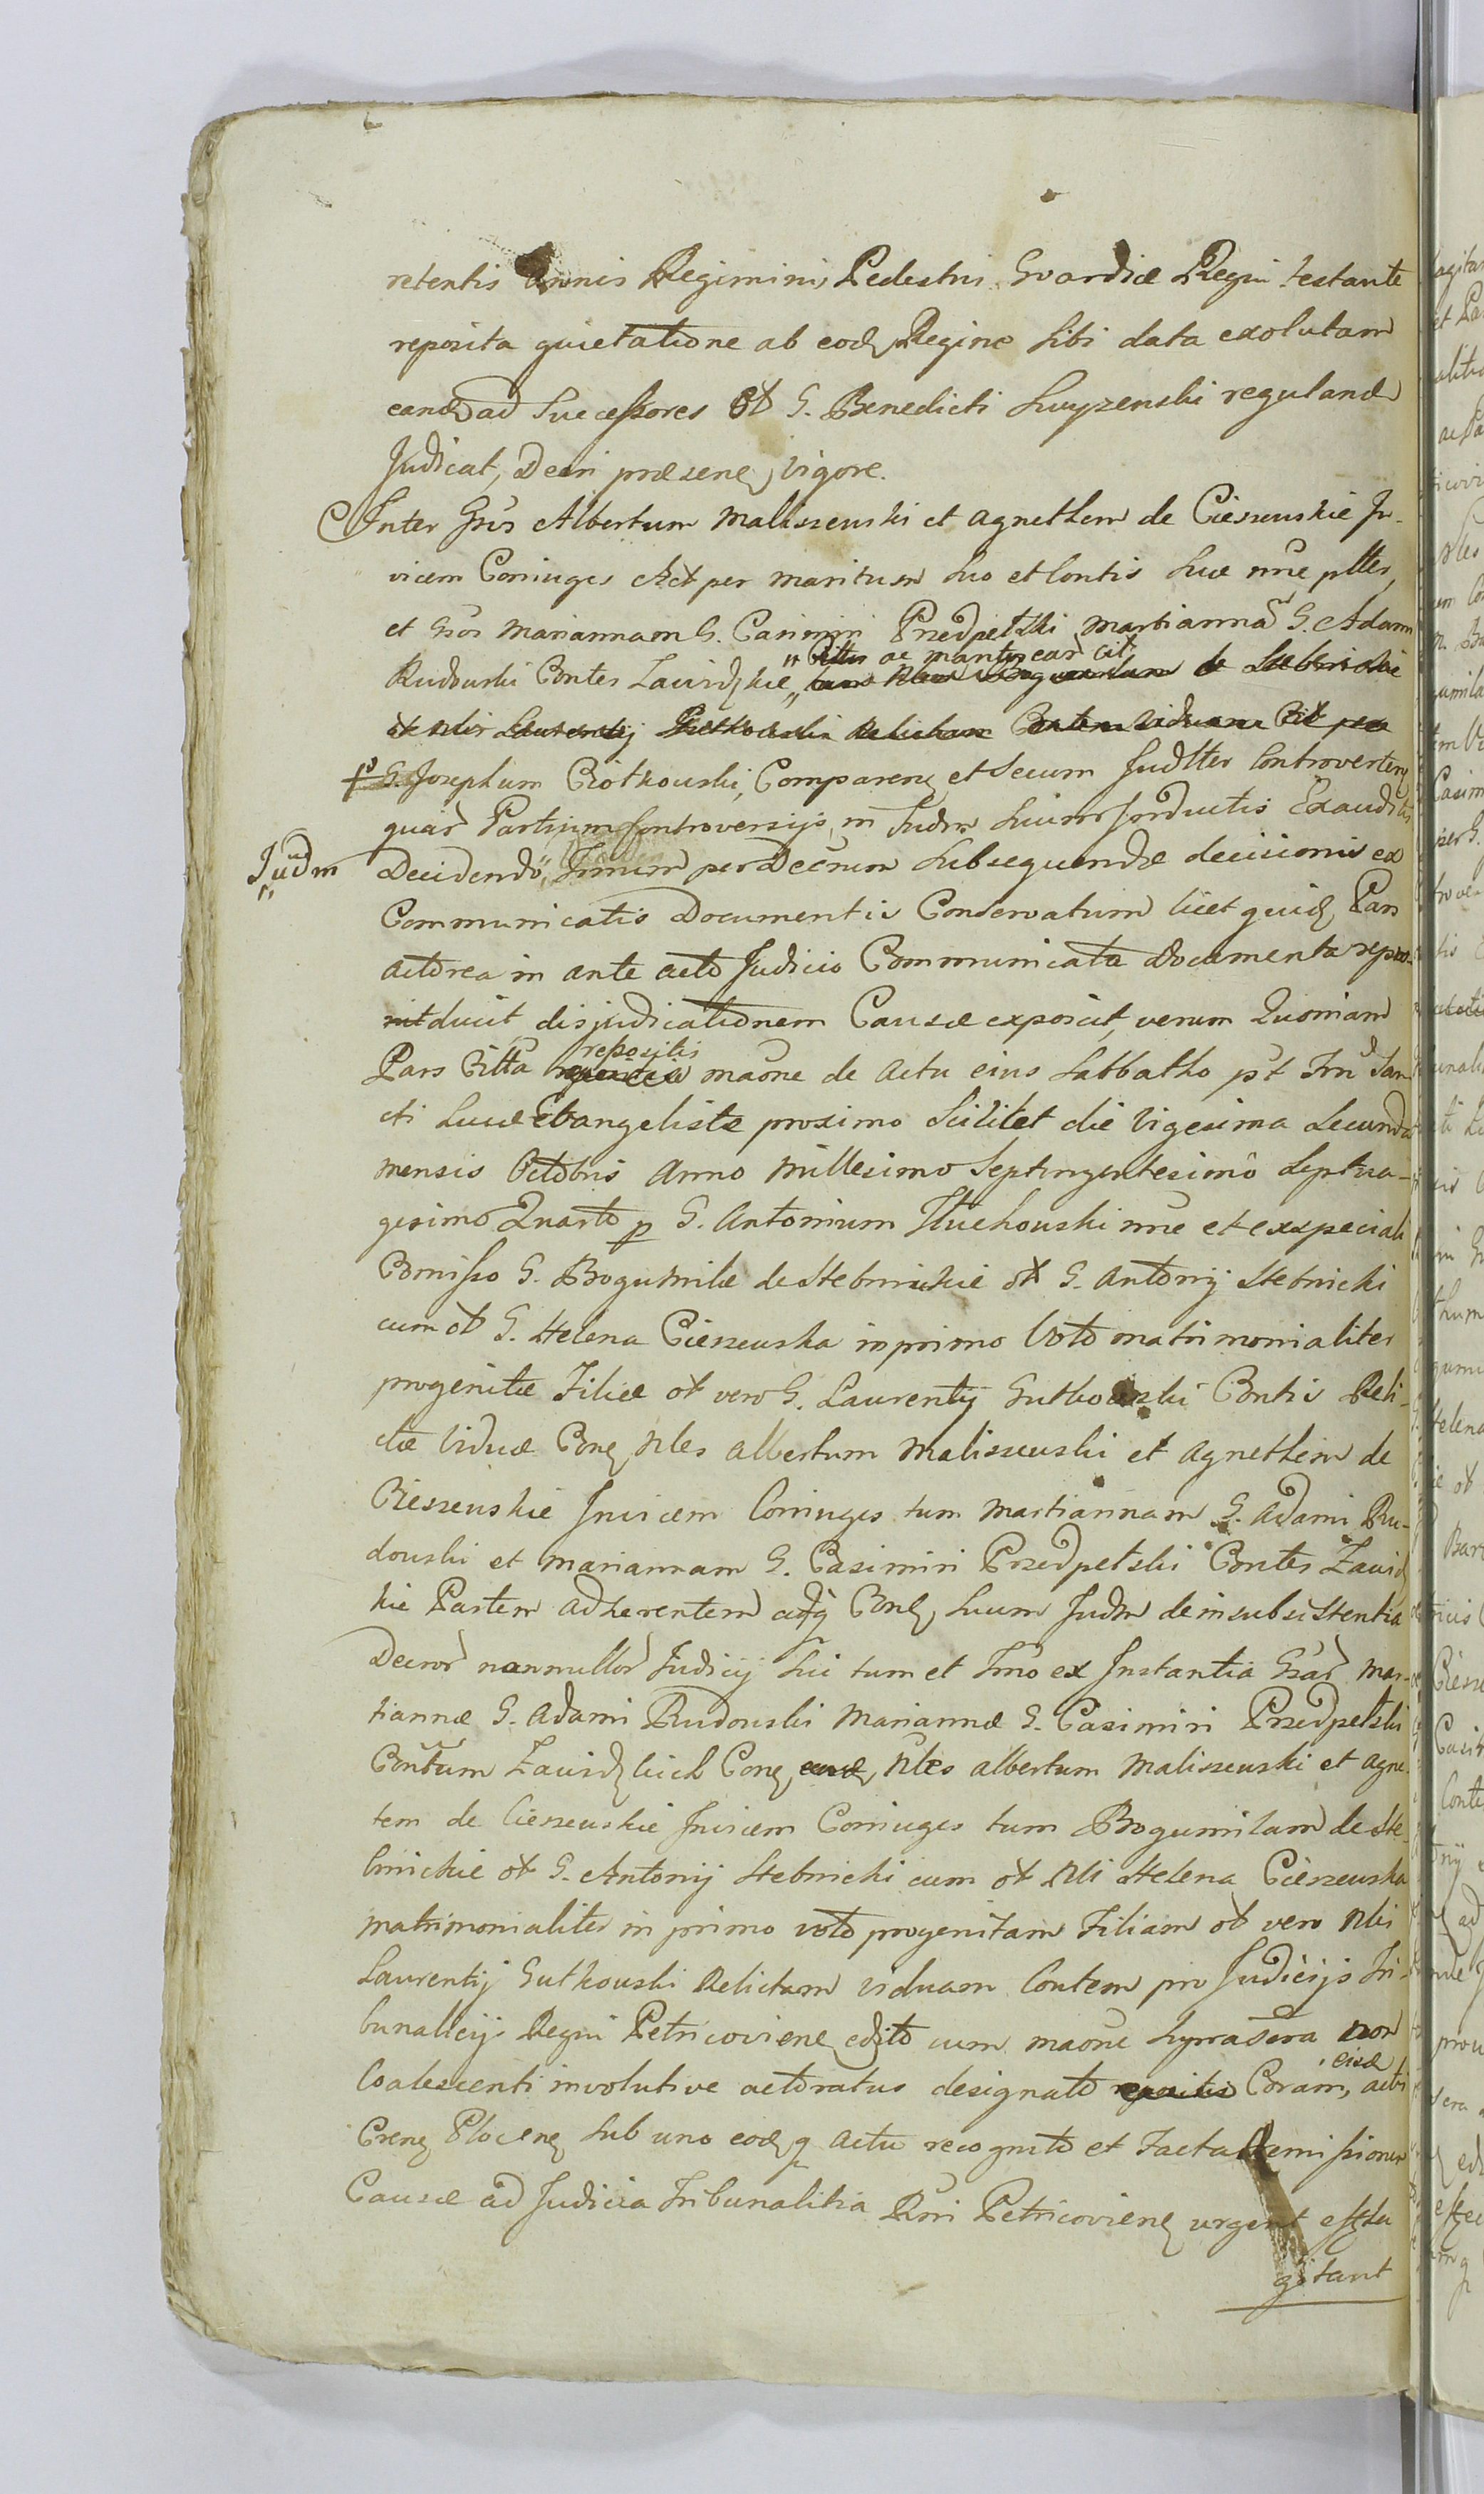 retentis Annis Regiminis Pedestris Gvardiæ Regni testante
reposita quietatione ab eod Regine sibi data exolutam
eand ad Successores Ol G. Benedicti Luyzenski reguland
Judicat, Decri præsen vigore.
Inter Gsos Albertum Maliszewski et Agnethem de Cieszewskie In-
vicem Coniuges Act per maritum suo et Contis suæ nne pltes,
et Gsos Mariannam G. Casimiri Przedpełski Martianna G. Adam
Rudowski Contes Zawidzkie " Cittas ac mantos ear cit
de Stebnickie
et Nlis Laurentij Gutkowski Relictam Contem viduam Cit per
G. Josephum Ciołkowski, Comparen et secum Judtter Controverten
quar Partium Controversijs in Judm suum Inductis Exauditis
Judm
Decidendo, per Decrum subsequendæ decisionis ex
Communicatis Documentis Conservatum licet quid Pars
actorea in ante acto Judicio Communicata documenta repro-
ducit disjudicationem Causæ exposcit, verum Quoniam
Pars Citta repositis maone de actu eius Sabbatho pt Frn San
cti Lucæ Evangelistæ proximo Scilitet die vigesima Secunda
mensis Octobris Anno Millesimo Septingentesimo Septua-
gesimo Quarto p G. Antonium Tłuchowski nne et ex speciali
Comisso G. Bogumilæ de Stebnickie ol G. Antonij Stebnicki
cum ol G. Helena Cieszewska in primo Voto matrimonialiter
progenitæ Filiæ ol vero G. Laurentij Gutkowski Contis Reli-
ctæ Viduæ Con Nles Albertum Maliszewski et Agnethem de
Cieszewskie Invicem Coniuges tum Martiannam G. Adami Ru-
dowski et Mariannam G. Casimiri Przedpełski Contes Zawidz
kie Partem adherentem adq Cond suum Judm de insubsistentia
Decror nonnullor Judicij sui tum et Imo ex Instantia Gsar Mar-
tiannæ G. Adami Rudowski Mariannæ G. Casimiri Przedpełski
Contum Zawidzkich Con, Nles Albertum Maliszewski et Agne-
tem de Cieszewskie Invicem Coniuges tum Bogumilam de Ste-
bnickie ol G. Antonij Stebnicki cum ol Nli Helena Cieszewska
matrimonialiter in primo voto progenitam Filiam ol vero Nlis
Laurentij Gutkowski Relictam viduam Contem pro Judicijs Tri-
bunalicijs Regni Petricovien edito cum maone supradra non
Coalescenti involutive actoratus designato Coram, eisd actis
Cren Plocen sub uno eodq actu recognito et Facta Remissione
Causæ ad Judicia Tribunalitia Rni Petricovien urgent effla
gitant